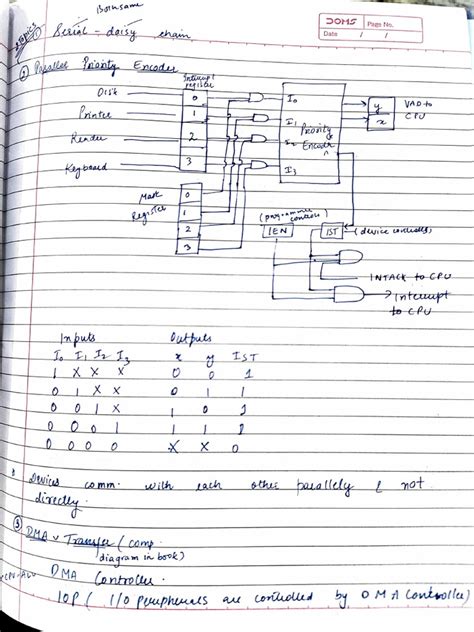 Both same
Topics
Serial - daisy chain
DOMS Page No.
Date / /
② Parallel Priority Encoder
Interrupt register
Disk 0 I₀ y VAD to CPU
Printer 1 I₁ Priority x
Reader 2 I₂ Encoder
Keyboard 3 I₃
Mask Register 0
1
2
3
(programme controls) IEN IST (device controls)
INTACK to CPU
Interrupt to CPU
Inputs Outputs
I₀ I₁ I₂ I₃ x y IST
1 X X X 0 0 1
0 1 X X 0 1 1
0 0 1 X 1 0 1
0 0 0 1 1 1 1
0 0 0 0 X X 0
Devices comm. with each other parallely & not
directly.
③ DMA Transfer (comp.
diagram in book)
DMA Controller.
IOP ( I/O peripherals are controlled by DMA Controller)